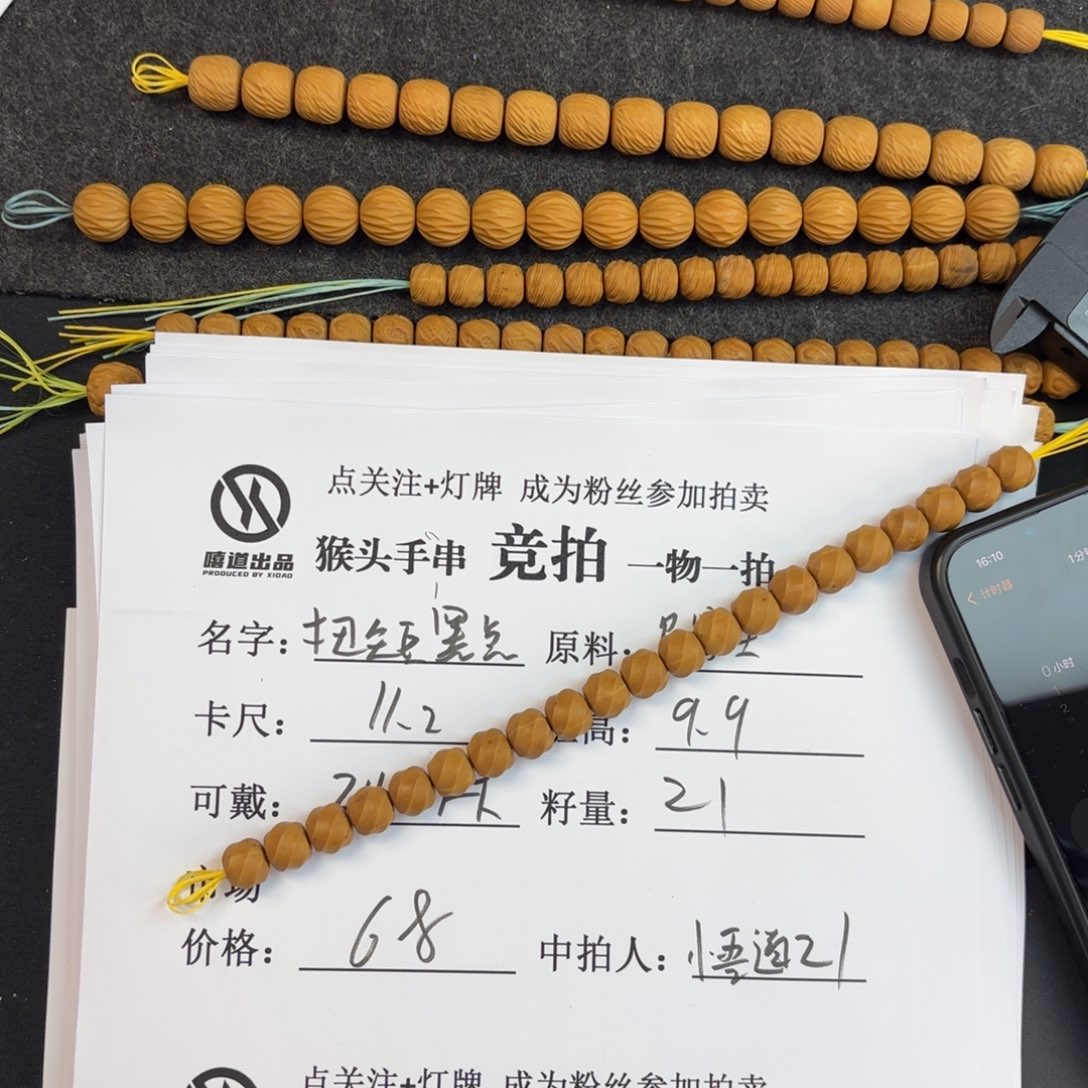 点关注+灯牌 成为粉丝参加拍卖
嘻道出品
PRODUCED BY XIDAO
猴头手串 竞拍 一物一拍
名字: 黑点 原料:
卡尺: 11.2 高: 9.9
可戴: 籽量: 21
市场
价格: 68 中拍人: 悟道21
16:10
计时器
0 小时
1
2
点关注+灯牌 成为粉丝参加拍卖